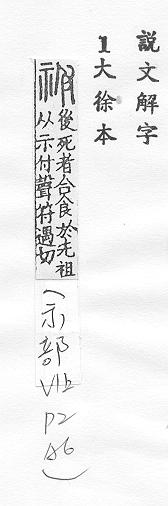 説文解字
1大徐本
祔 後死者合食於先祖
从示付聲符遇切
(示部V1上P2A6)